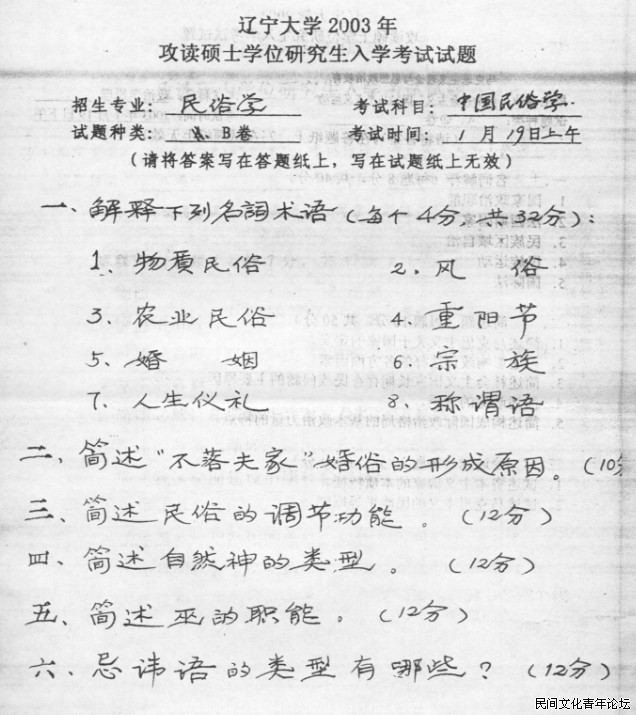 辽宁大学 2003 年
攻读硕士学位研究生入学考试试题
招生专业: 民俗学 考试科目: 中国民俗学.
试题种类: B卷 考试时间: 1月19日上午
(请将答案写在答题纸上，写在试题纸上无效)
一、解释下列名詞术语(每个4分,共32分):
1、物质民俗 2、风 俗
3、农业民俗 4、重阳节
5、婚 姻 6、宗 族
7、人生仪礼 8、称谓语
二、简述“不落夫家”婚俗的形成原因。(10分
三、简述民俗的调节功能。(12分)
四、简述自然神的类型。(12分)
五、简述巫的职能。(12分)
六、忌讳语的类型有哪些？(12分)
民间文化青年论坛